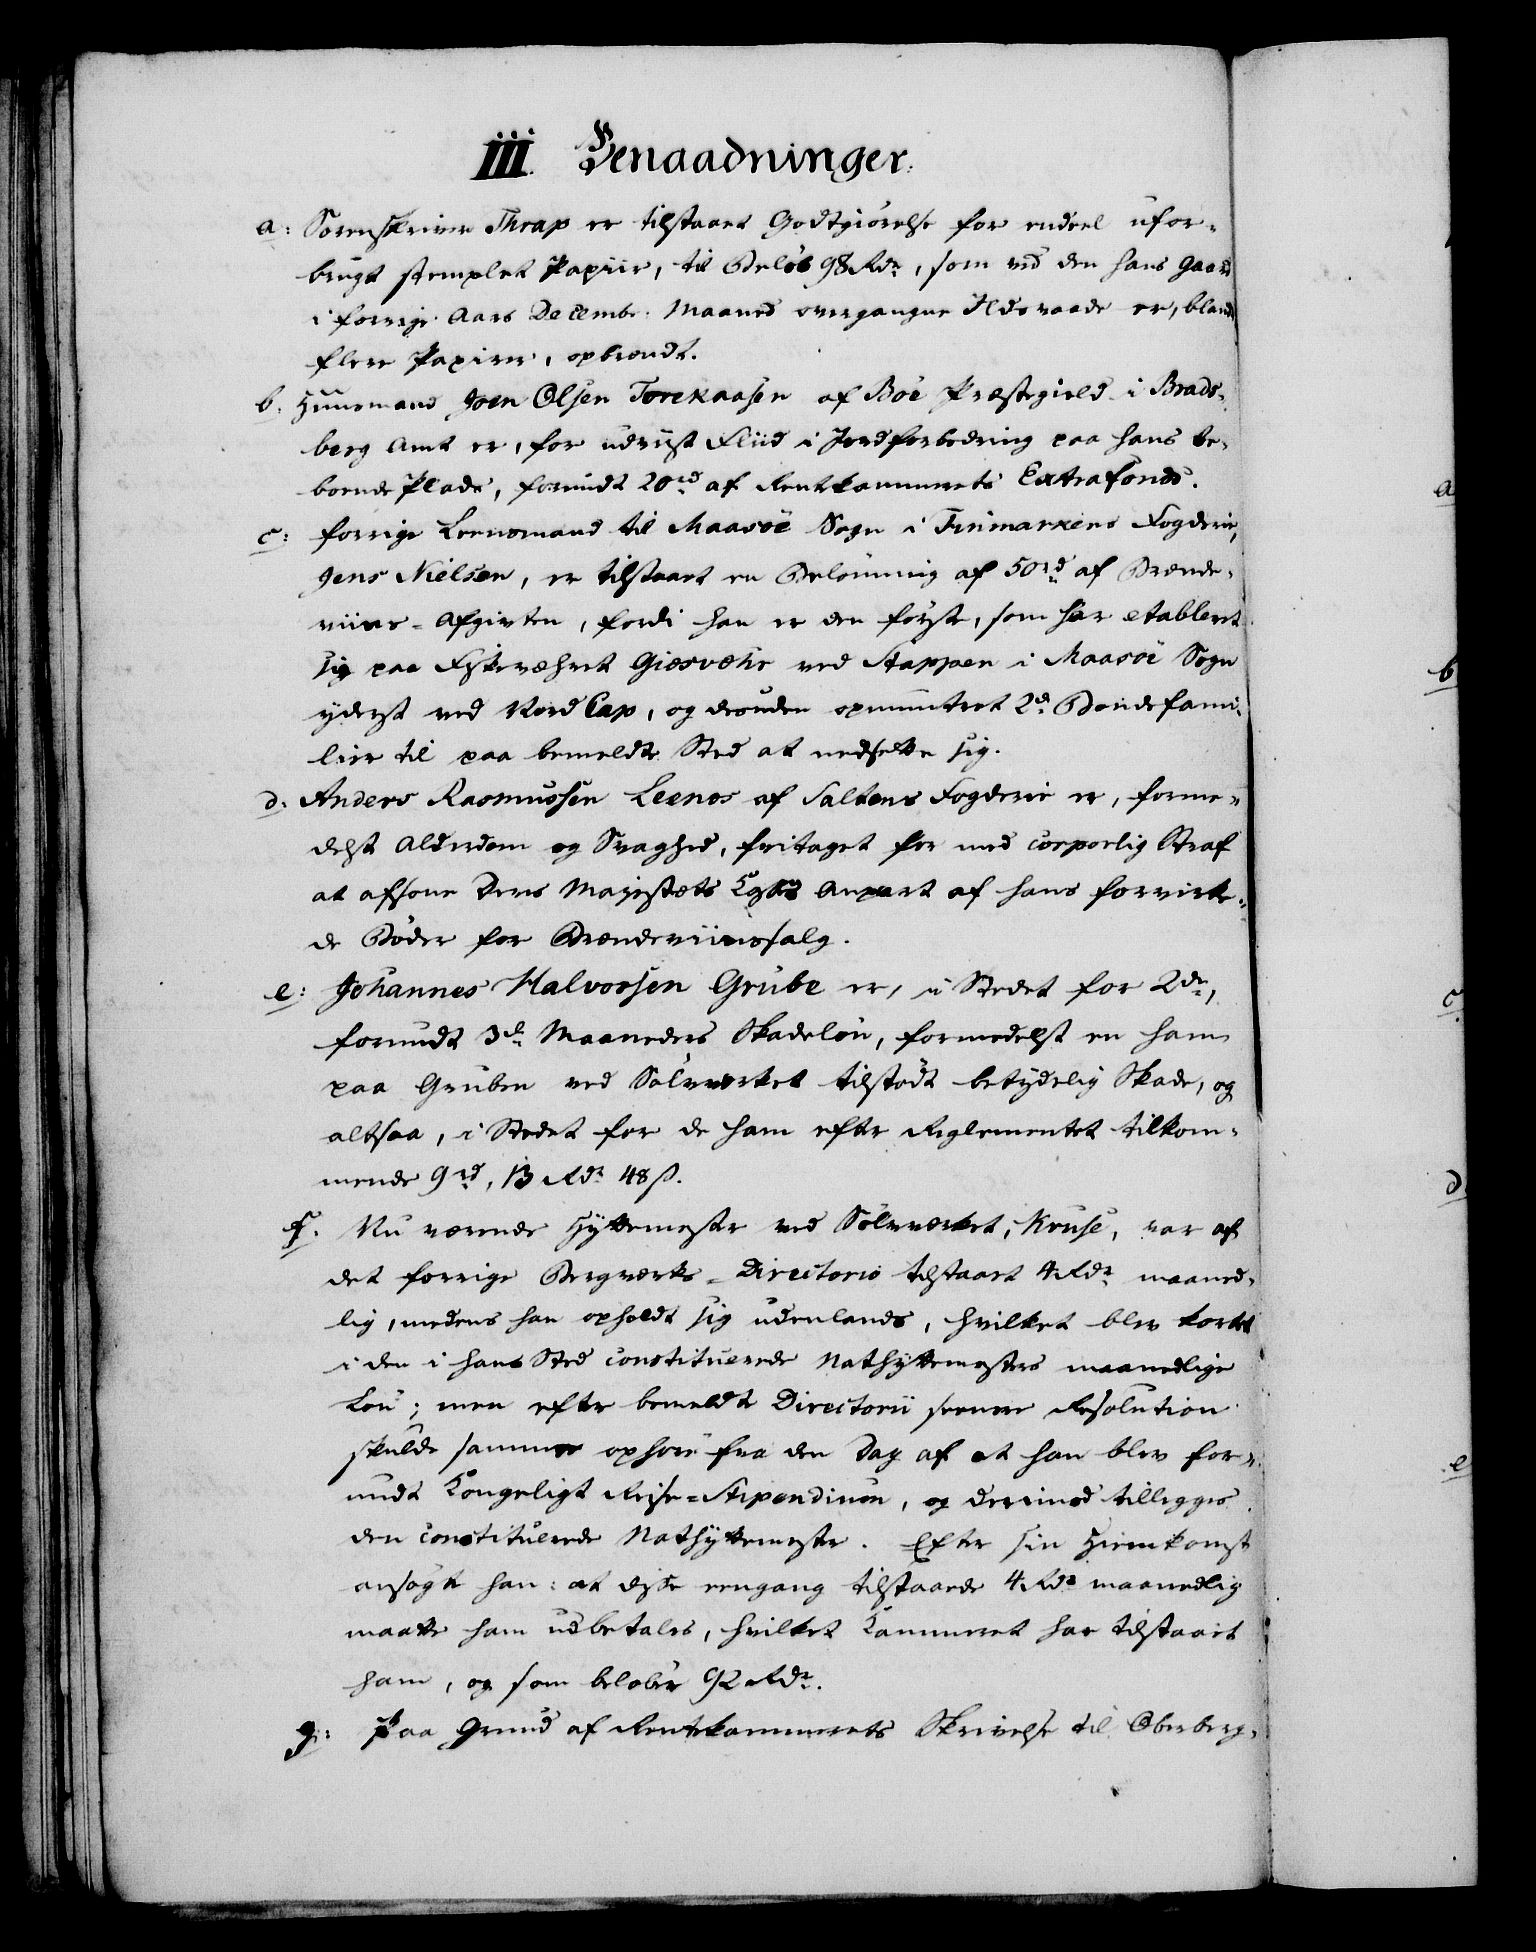 III. Benaadninger.
a: Sorenskriver Thrap er tilstaaet Godtgiörelse for endeel ufor-
brugt stemplet Papiir, til Beløb 98 Rdr, som ved den hans Gaard
i forrige Aars Decembr. Maaned overgangne Ildsvaade er, blandt
flere Papirer, opbrændt.
b. Huusmand Joen Olsen Torekaasen af Böe Præstegield i Brads-
berg Amt er, for udviist Fliid i Jordforbedring paa hans be-
boende Plads, forundt 20rd af Rentekammerets Extrafonds.
c: forrige Leensmand til Maasöe Sogn i Finmarkens Fogderie,
Jens Nielsen, er tilstaaet en Belönning af 50rd af Brænde-
viins-Afgivten, fordi han er den förste, som har etableret
sig paa Fiskeværet Giesvær ved Stappen i Maasöe Sogn
yderst ved Nord Cap, og desuden opmuntret 2de Bondefami-
lier til paa bemeldte Sted at nedsette sig.
d: Anders Rasmussen Leenos af Saltens Fogderie er, forme-
delst Alderdom og Svaghed, fritaget for med corporlig Straf
at afsone Deres Majestæts Kgle Anpart af hans forvirke-
de Böder for Brændeviinssalg.
e: Johannes Halvorsen Grube er, i Stedet for 2de,
forundt 3de Maaneders Skadelön, formedelst en ham
paa Gruben ved Sölvverket tilstödt betydelig Skade, og
altsaa, i Stedet for de ham efter Reglementet tilkom-
mende 9rd, 13 Rdr 48 ß.
f. Nu værende Hyttemester ved Sölvværket, Kruse, var af
det forrige Bergværks-Directorio tilstaaet 4 Rdr maaned-
lig, medens han opholdt sig udenlands, hvilket blev kortet
i den i hans Sted constituerede Nathyttemesters maanedlige
Lön; men efter bemeldte Directorii senere Resolution
skulde samme ophöre fra den Dag af at han blev for-
undt Kongeligt Reise-Stipendium, og derimod tillegges
den constituerede Nathyttemester. Efter sin Hiemkomst
ansögte han: at disse eengang tilstaaede 4 Rdr maanedlig
maatte ham udbetales, hvilket Kammeret har tilstaaet
ham, og som belöber 92 Rdr.
g: Paa Grund af Rentekammerets Skrivelse til Oberberg-
a
b
c
d
e